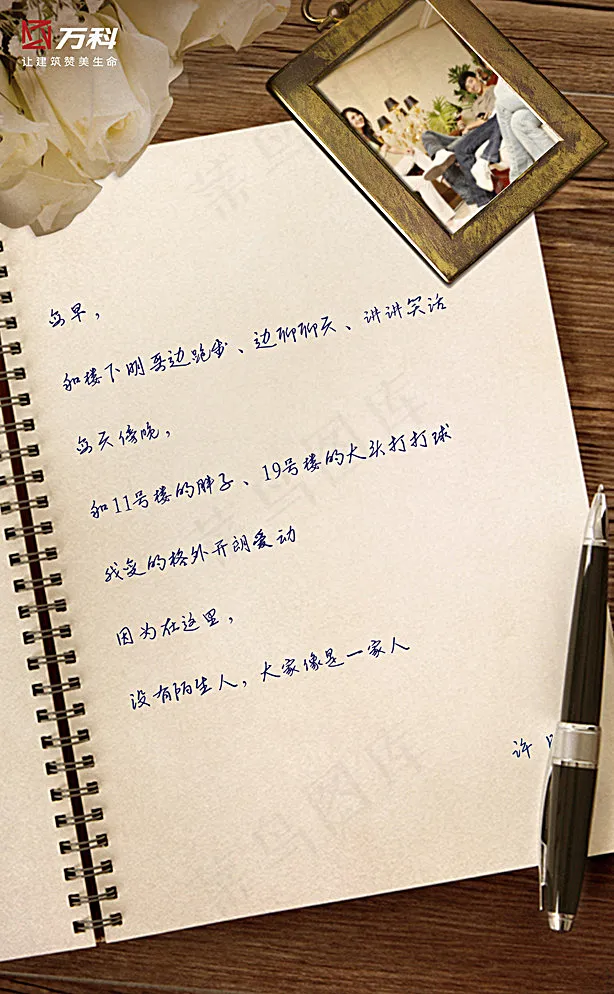 万科
让建筑赞美生命
每早，
和楼下明哥边跑步、边聊聊天、讲讲笑话
每天傍晚，
和11号楼的胖子、19号楼的大头打打球
我变的格外开朗爱动
因为在这里，
没有陌生人，大家像是一家人
许
菜鸟图库
菜鸟图库
菜鸟图库